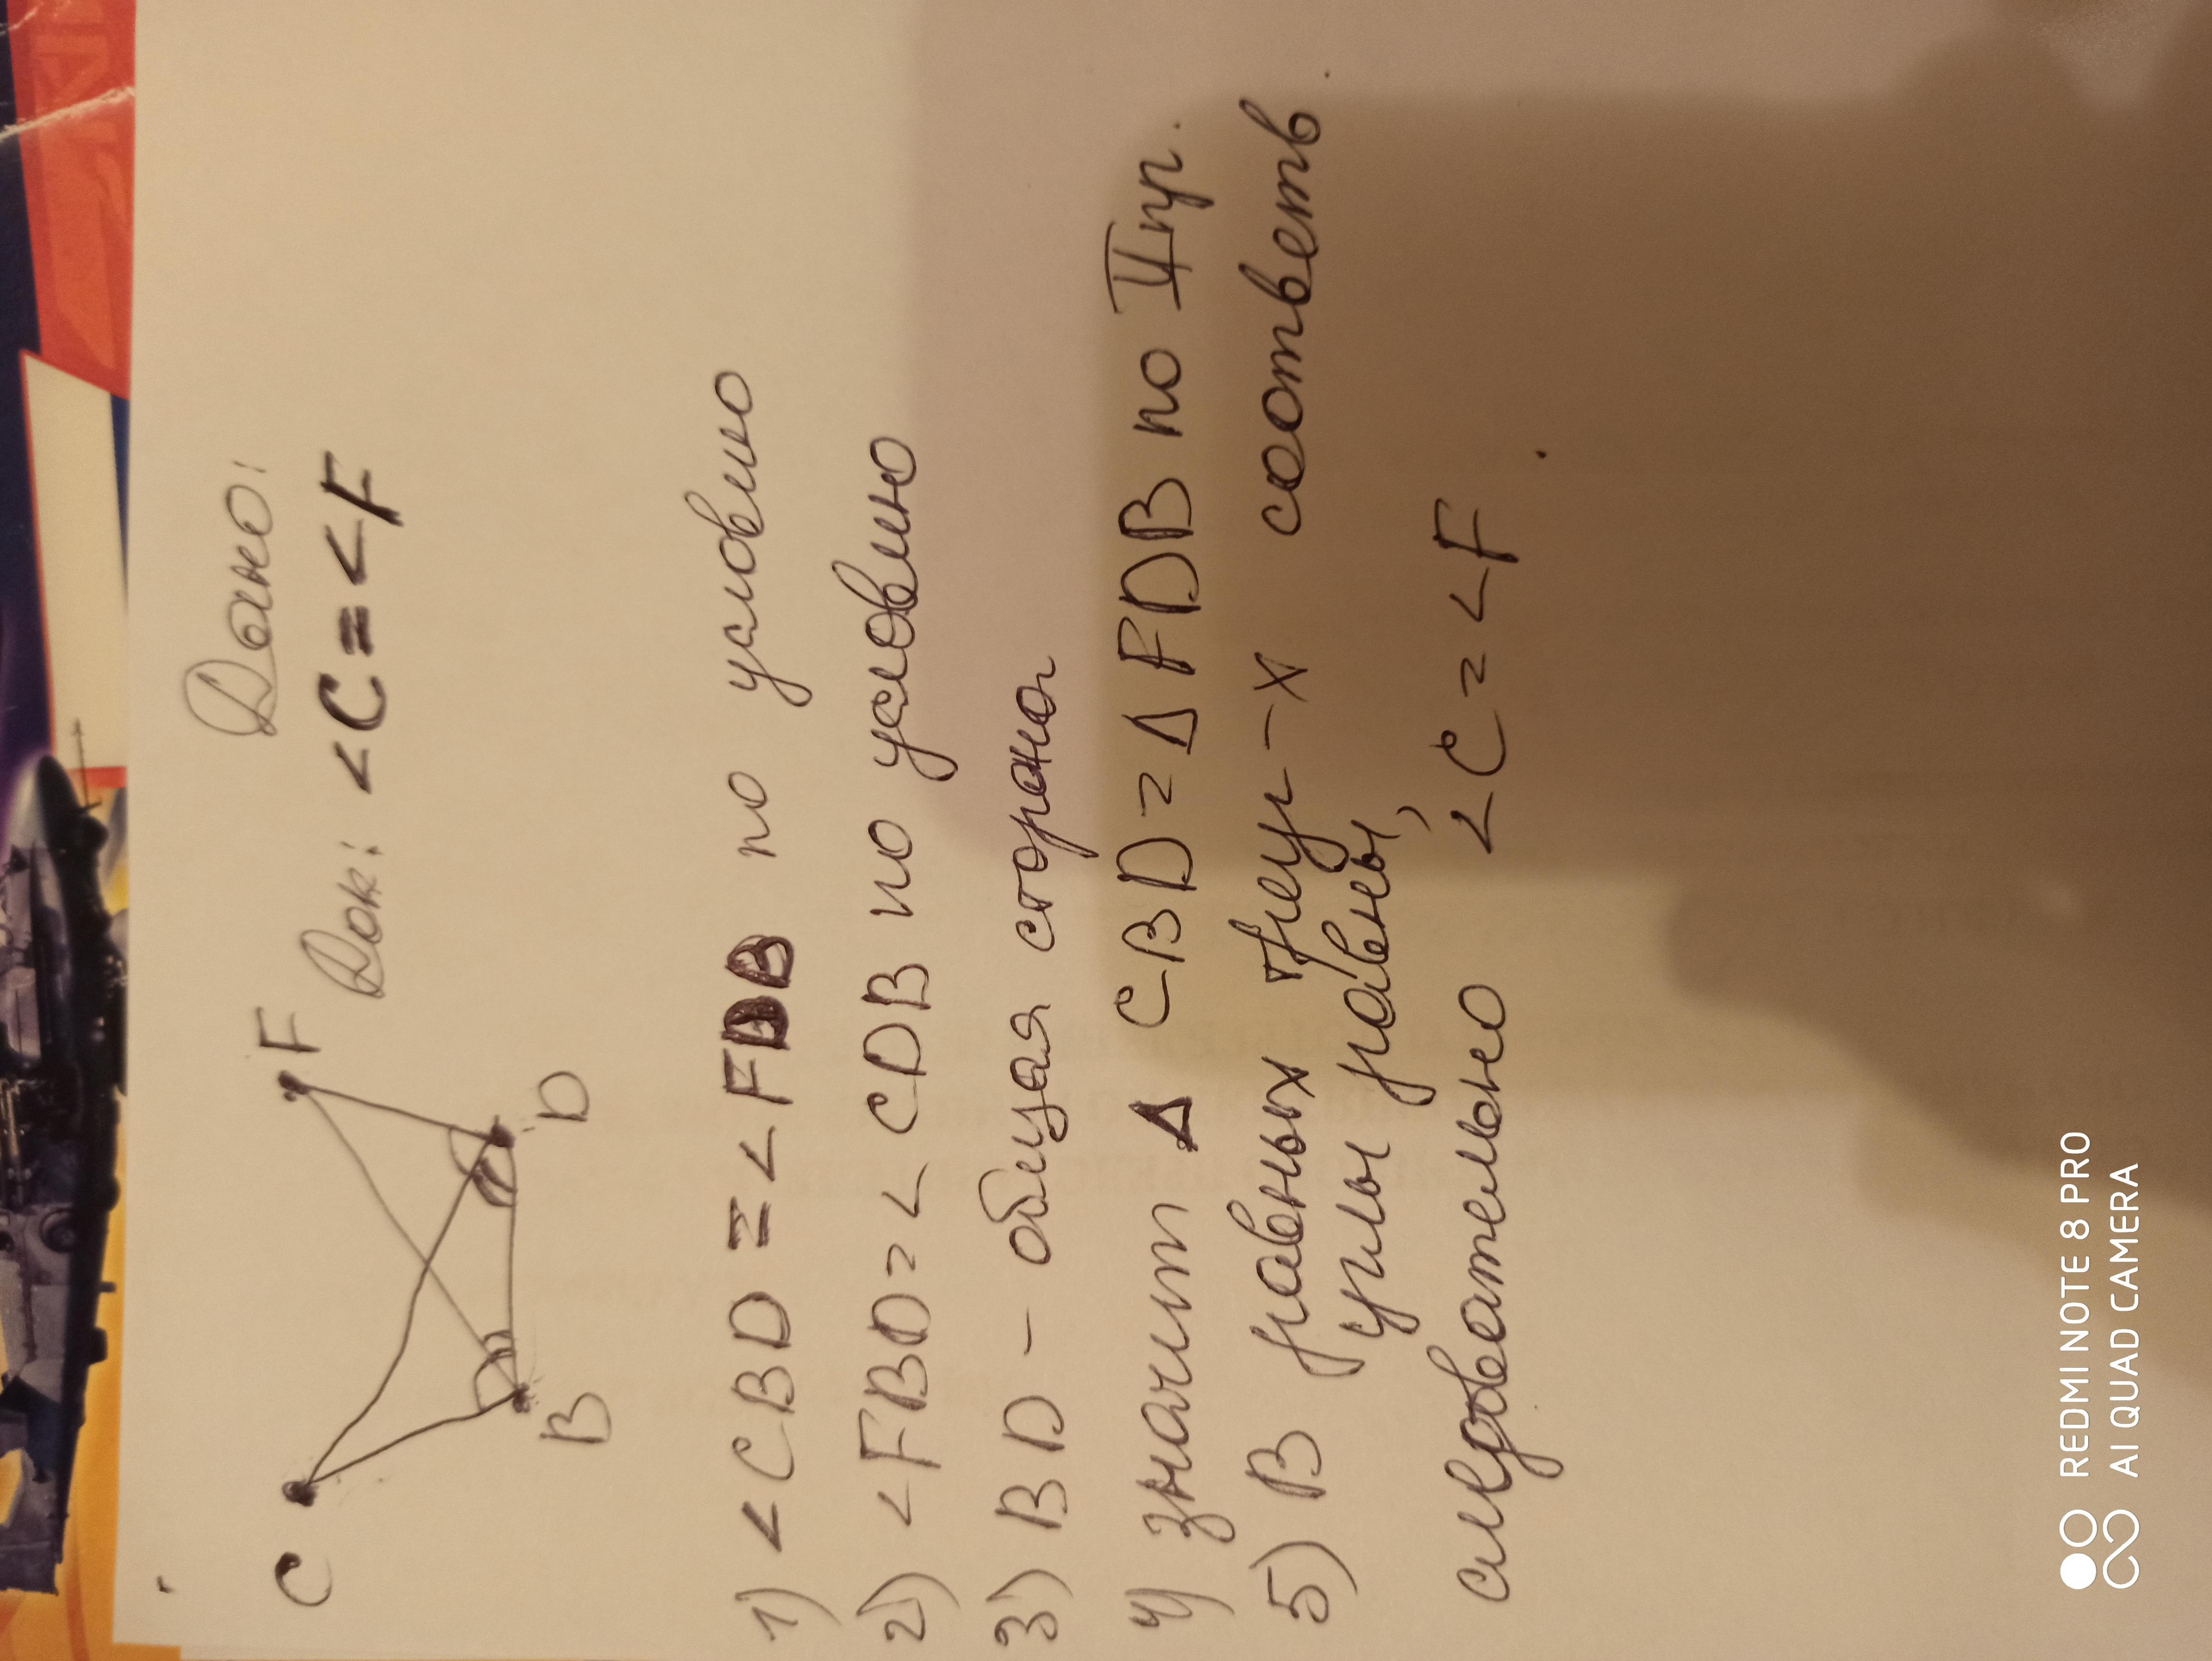 Дано:
Док: <C=<F
C
F
B
D
1) <CBD = <FDB по условию
2) <FBD = < CDB по условию
3) BD - общая сторона
4) значит Δ CBD = Δ FDB по II пр.
5) В равных треу-х соответв
углы равны,
следовательно <C = <F.
REDMI NOTE 8 PRO
AI QUAD CAMERA